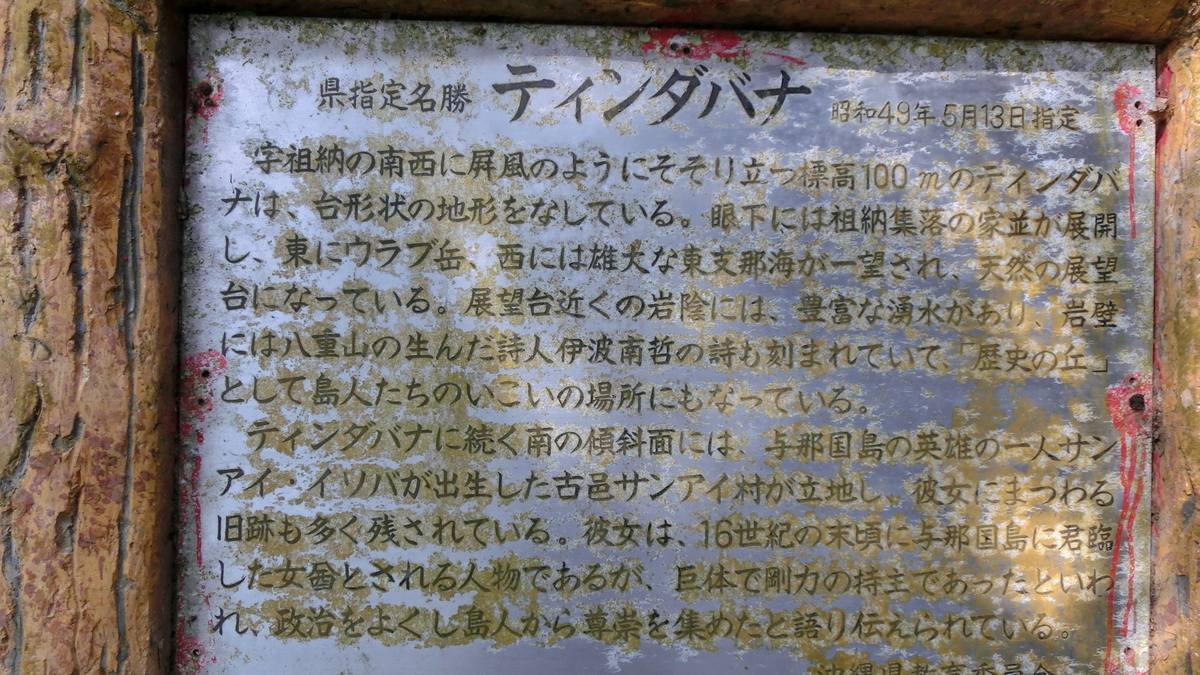 県指定名勝 ティンダバナ 昭和49年5月13日指定
字祖納の南西に屏風のようにそそり立つ標高100mのティンダバ
ナは、台形状の地形をなしている。眼下には祖納集落の家並が展開
し、東にウラブ岳、西には雄大な東支那海が一望され、天然の展望
台になっている。展望台近くの岩陰には、豊富な湧水があり、岩壁
には八重山の生んだ詩人伊波南哲の詩も刻まれていて、「歴史の丘」
として島人たちのいこいの場所にもなっている。
ティンダバナに続く南の傾斜面には、与那国島の英雄の一人サン
アイ・イソバが出生した古邑サンアイ村が立地し、彼女にまつわる
旧跡も多く残されている。彼女は、16世紀の末頃に与那国島に君臨
した女酋とされる人物であるが、巨体で剛力の持主であったといわ
れ、政治をよくし島人から尊崇を集めたと語り伝えられている。
沖縄県教育委員会